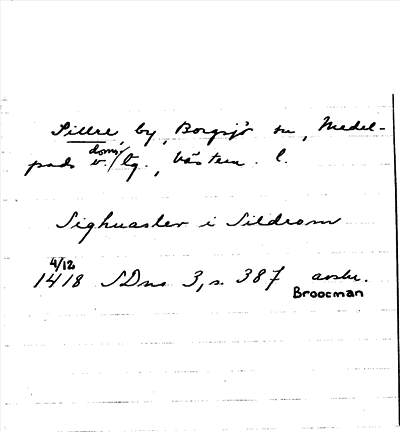 Sillre, by, Borgsjö sn, Medel-
pads v. doms/tg., Västern. l.
Sighuaster i Sildrom
4/12
1418 SDns 3, s. 387 avskr.
Broocman